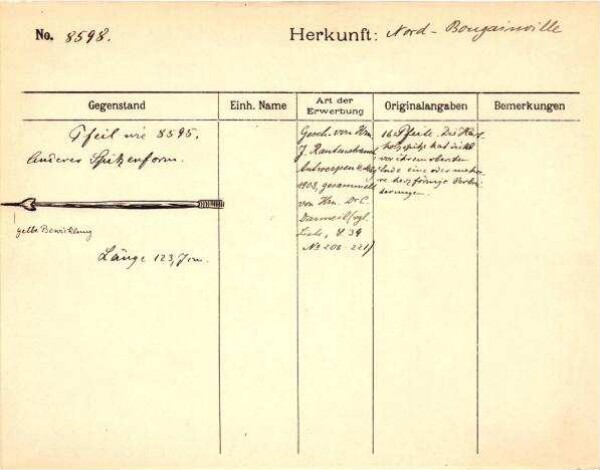 No. 8598.
Herkunft: Nord-Bougainville
Gegenstand
Einh. Name
Art der Erwerbung
Originalangaben
Bemerkungen
Pfeil wie 8595,
Anderes Spitzenform.
gelbe Bewicklung
Länge 123,7 cm.
Gesch. von Hrn
J. Rautenstrauch
Antwerpen
1903, gesammelt
von Hrn. Dr C.
(vgl.
Liste, S 39
No 206-221)
16 Pfeile. Die
holzspitze hat dicht
vor ihrem obersten
Ende eine oder mehre
re herzförmige Verbrei
derungen.